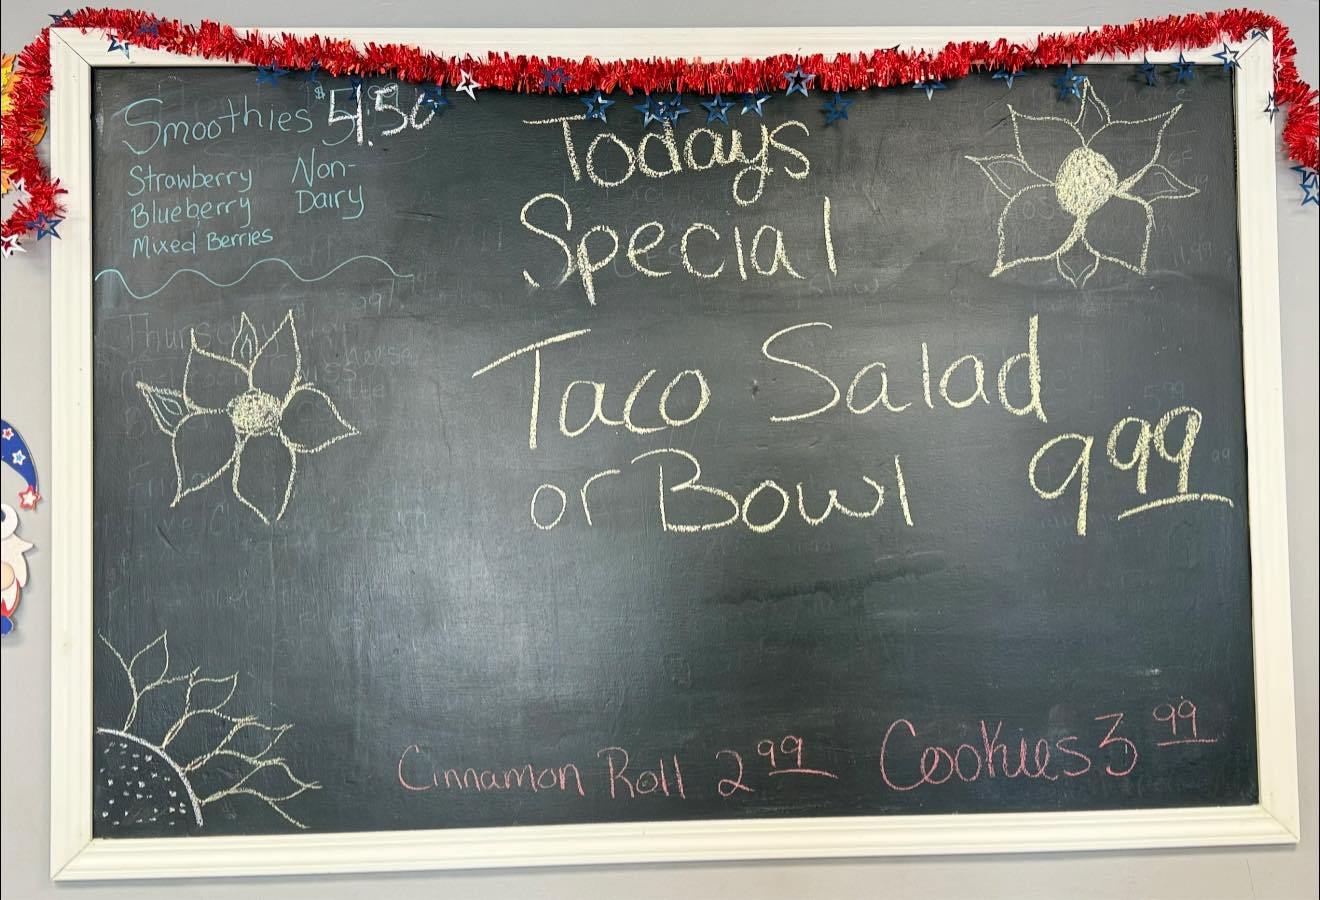 Smoothies $5.50
Strawberry Non-
Blueberry Dairy
Mixed Berries
Todays
Special
Taco Salad
or Bowl 9 99
Cinnamon Roll 2 99 Cookies 3 99